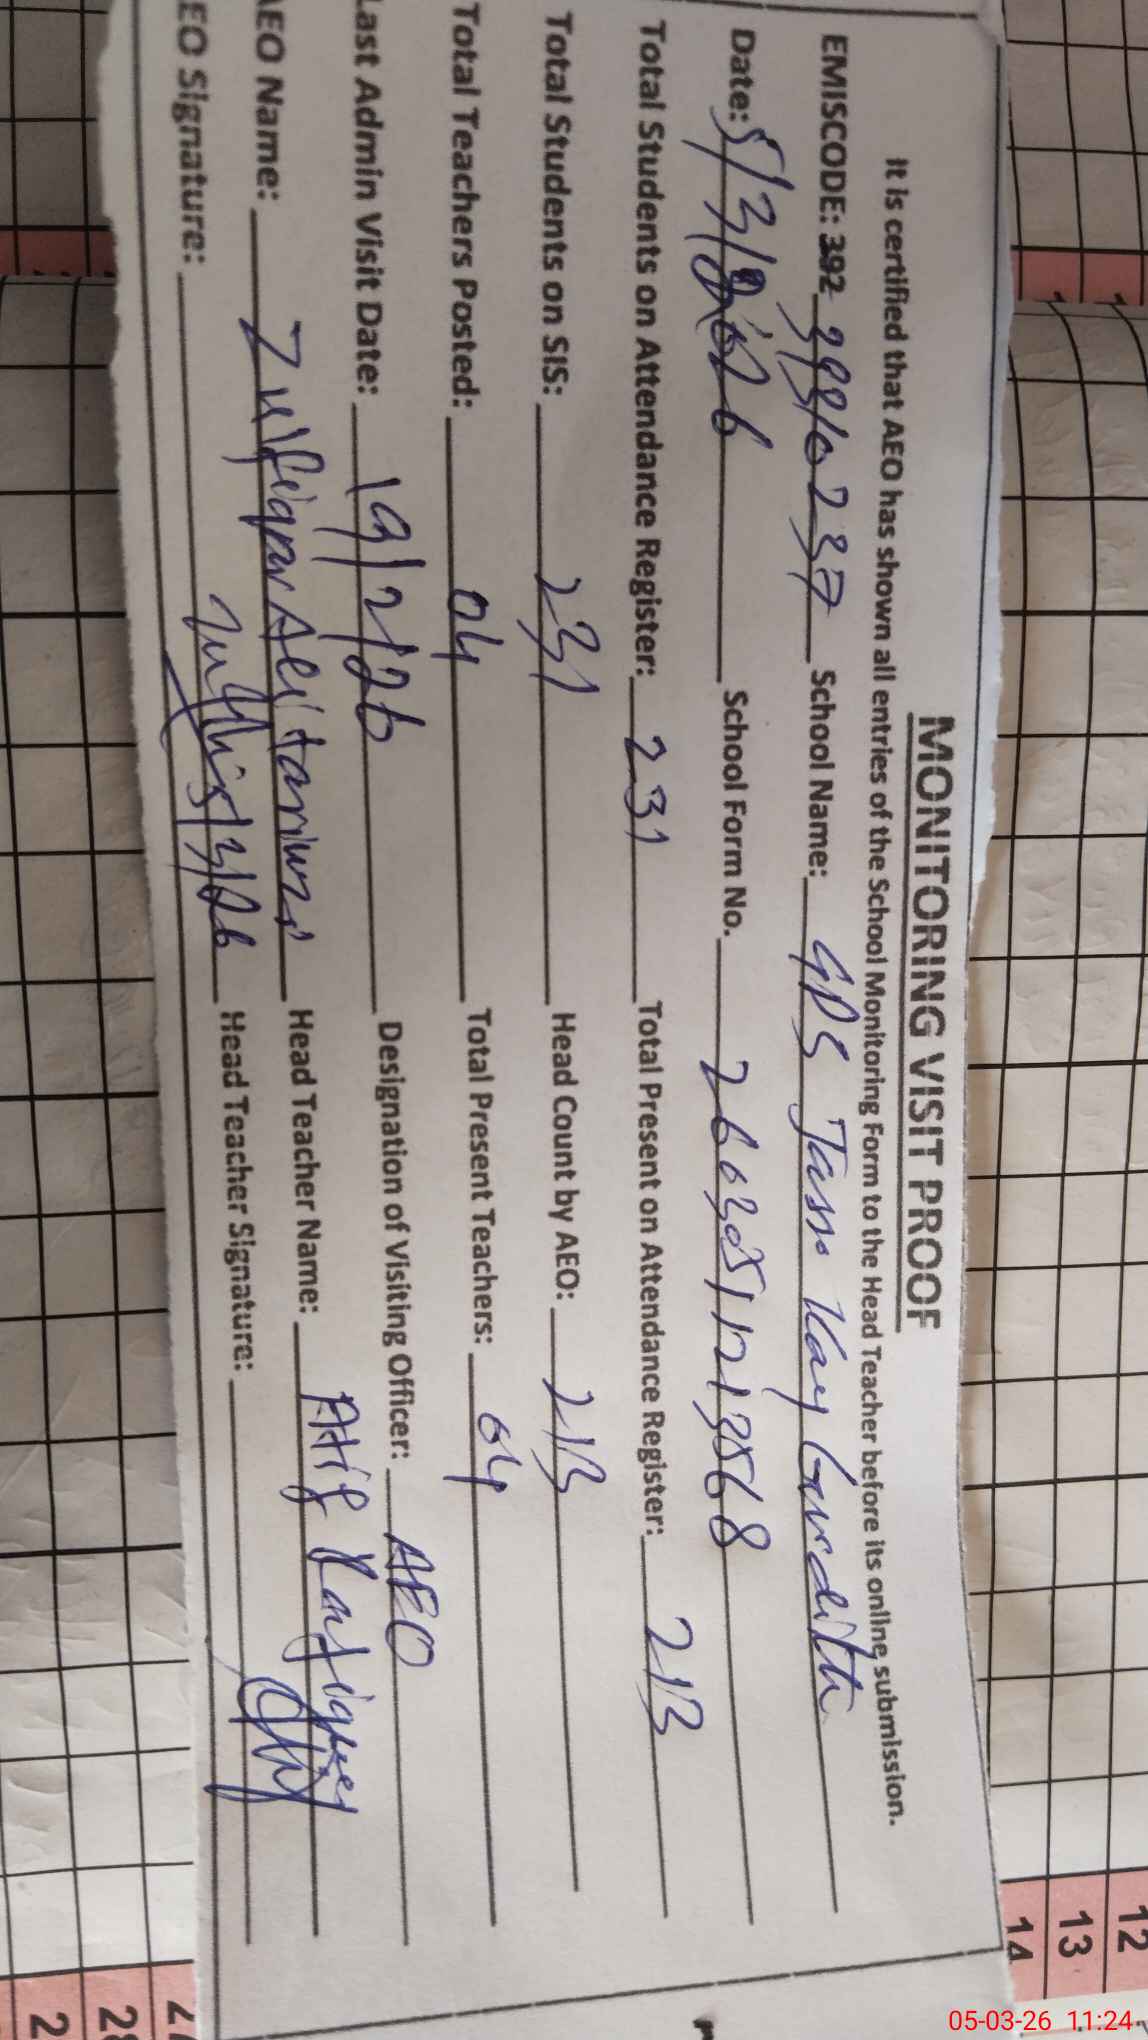 MONITORING VISIT PROOF
It is certified that AEO has shown all entries of the School Monitoring Form to the Head Teacher before its online submission.
EMISCODE: 392 39310237 School Name: GPS Jasso Kay Gurditta
Date: 5/3/2026 School Form No. 26030511213568
Total Students on Attendance Register: 231 Total Present on Attendance Register: 213
Total Students on SIS: 231 Head Count by AEO: 213
Total Teachers Posted: 04 Total Present Teachers: 04
Last Admin Visit Date: 19/2/26 Designation of Visiting Officer: AEO
AEO Name: Zulfiqar Ali Head Teacher Name: Atif Rafique
EO Signature: Head Teacher Signature:
12
13
14
2
05-03-26 11:24